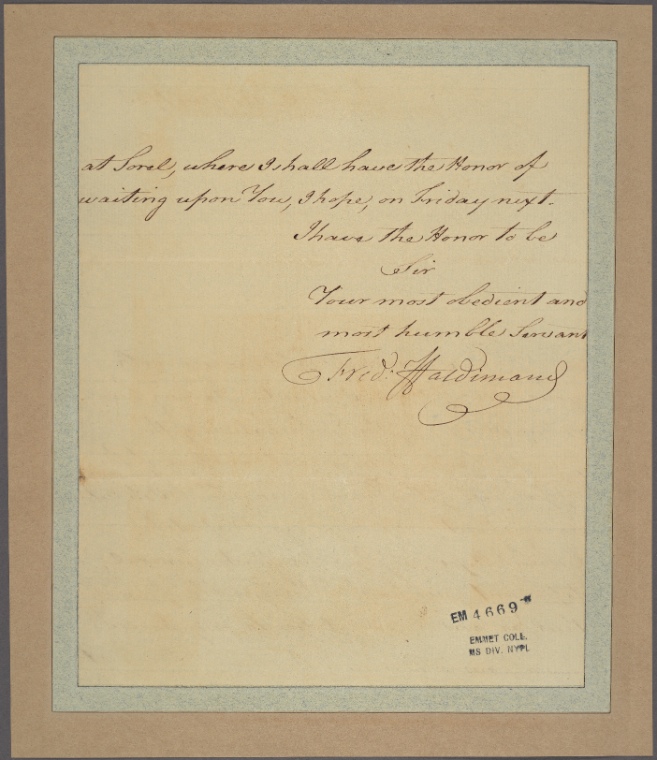 at Sorel, where I shall have the Honor of
waiting upon You, I hope, on Friday next.
I have the Honor to be
Sir
Your most obedient and
most humble Servant
Fred: Haldimand
EM 4669
EMMET COLL.
MS DIV. NYPL